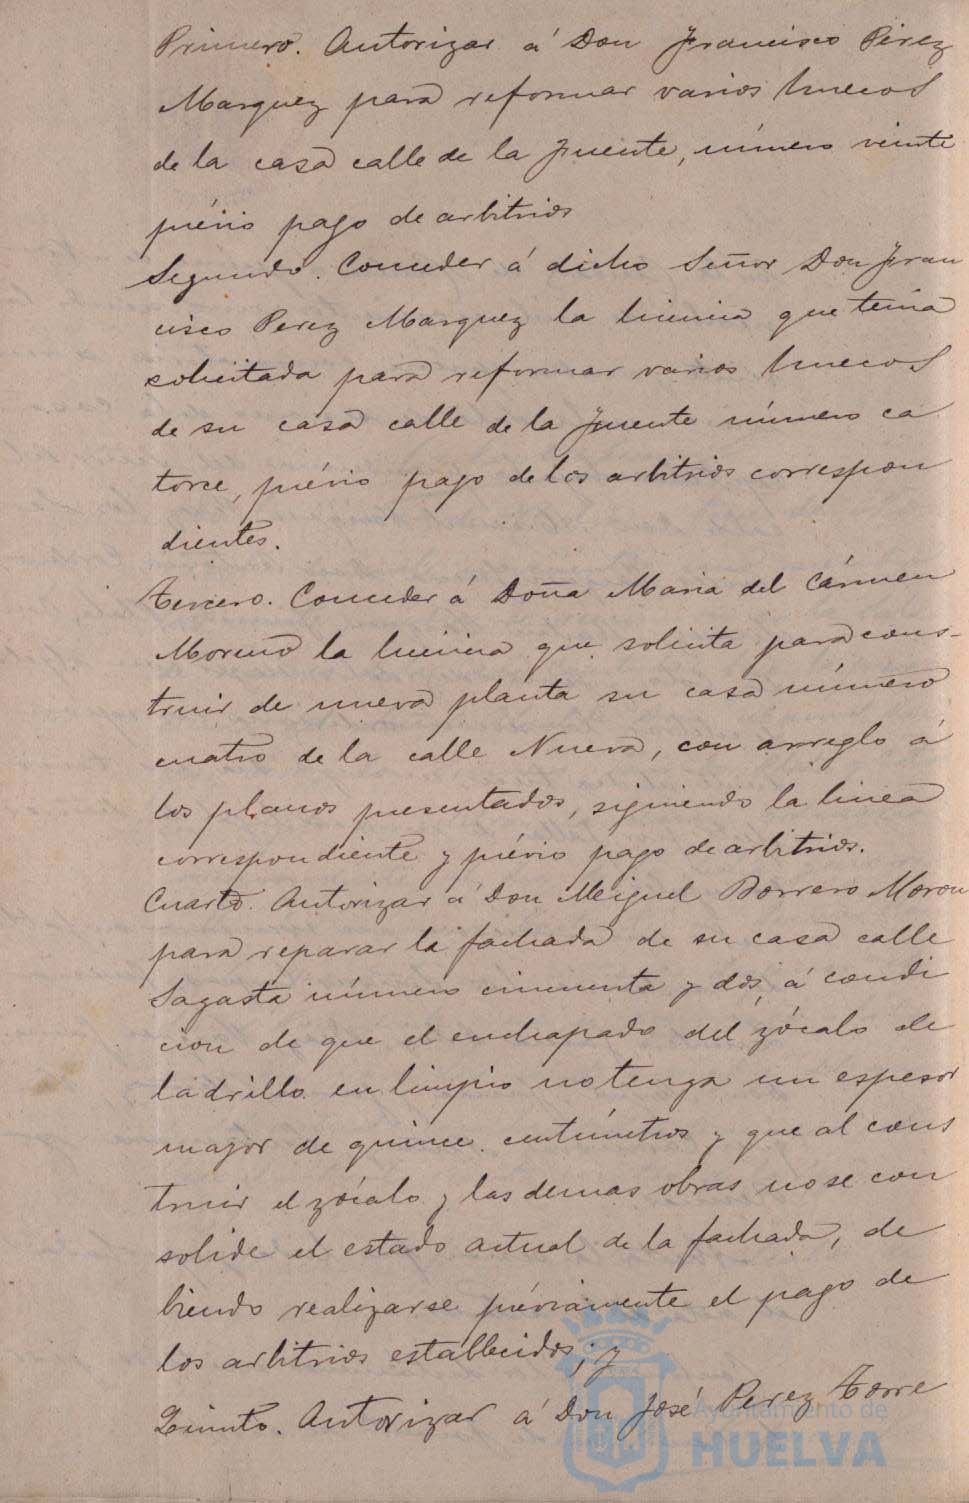 Primero. Autorizar á Don Francisco Pérez
Marquez para reformar varios huecos
de la casa calle de la Fuente, número veinte
prévio pago de arbitrios
Segundo. Conceder á dicho Señor Don Fran
cisco Perez Marquez la licencia que tenia
solicitada para reformar varios huecos
de su casa calle de la Fuente número ca
torce, prévio pago de los arbitrios correspon
dientes.
Tercero. Conceder á Doña Maria del Cármen
Moreno la licencia que solicita para cons-
truir de nueva planta su casa número
cuatro de la calle Nueva, con arreglo á
los planos presentados, siguiendo la linea
correspondiente y prévio pago de arbitrios.
Cuarto. Autorizar á Don Meiguel Borrero Moron
para reparar la fachada de su casa calle
Sagasta número cincuenta y dos, á condi
cion de que el enchapado del zócalo de
ladrillo en limpio no tenga un espesor
mayor de quince centímetros y que al cons
truir el zócalo y las demas obras no se con
solide el estado actual de la fachada, de
biendo realizarse préviamente el pago de
los arbitrios establecidos; y
Quinto. Autorizar á Don José Perez Torre
Ayuntamiento de
HUELVA